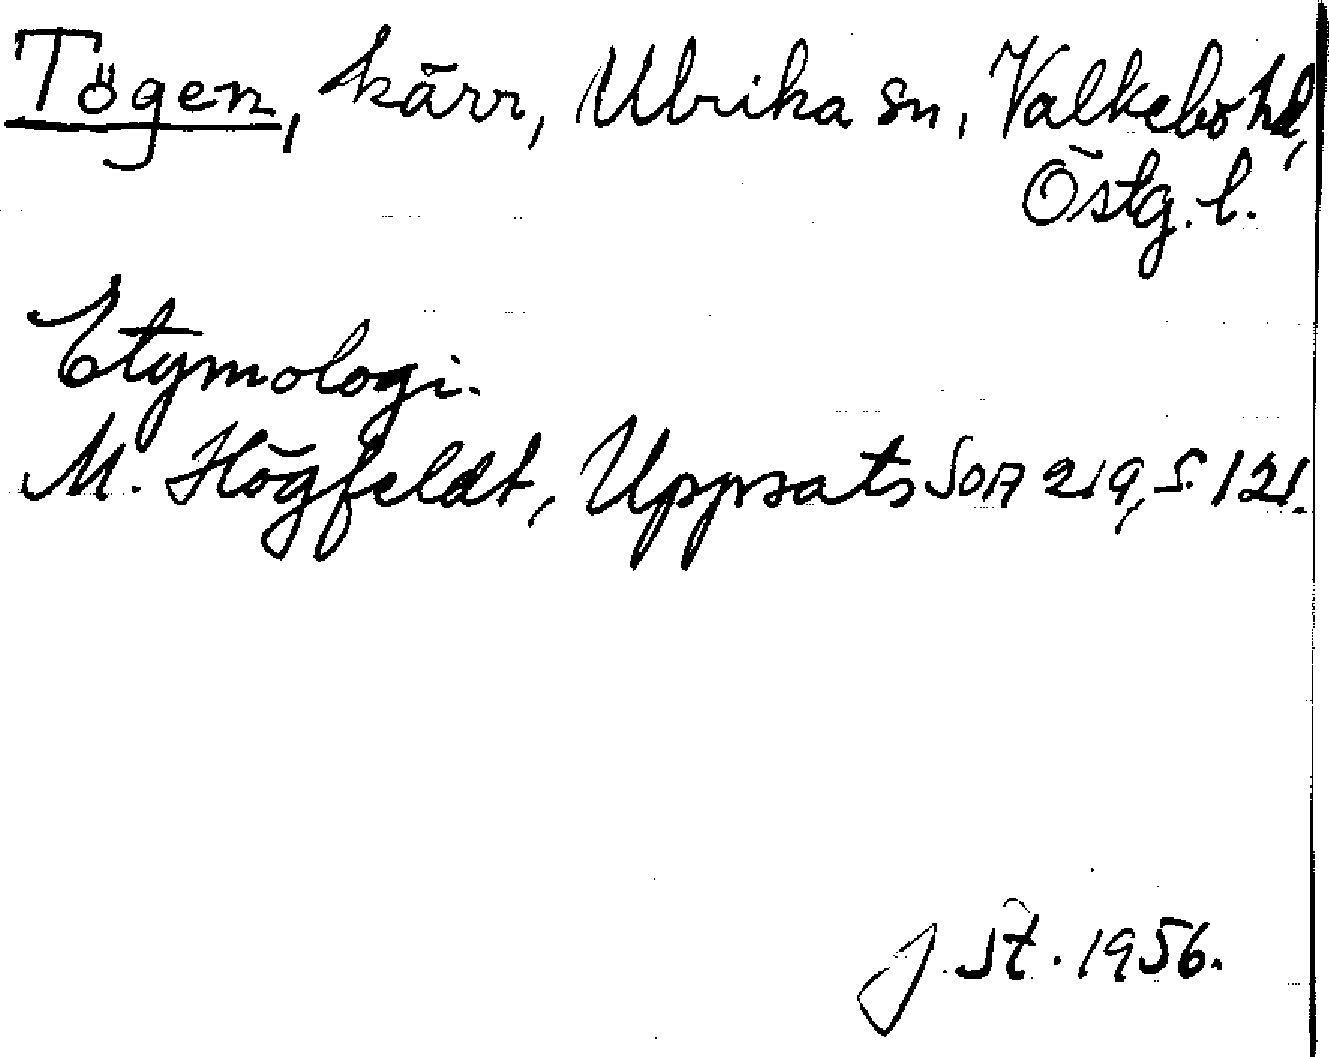 Tögen, kärr, Ulrika sn, Valkebo hd,
Östg. l.
Etymologi.
M. Högfeldt, Uppsats SOA 219, s. 121.
J. St. 1956.